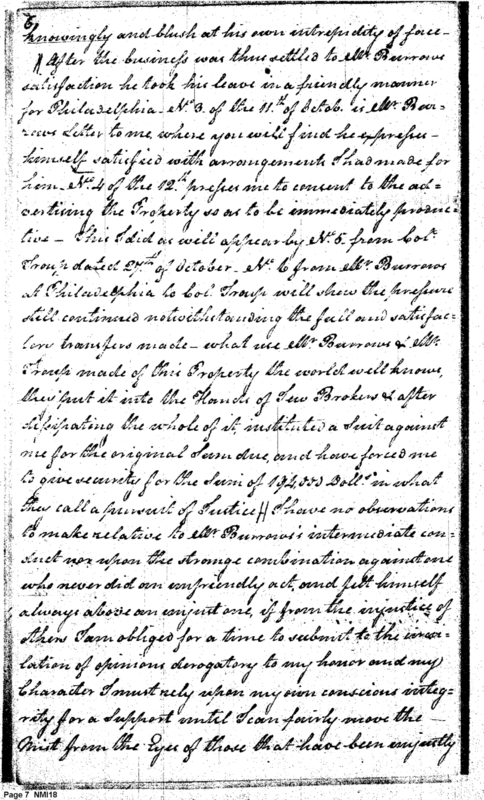 6
knowingly and blush at his own intrepidity of face –
After the business was thus settled to Mr. Burrows
satisfaction he took his leave in a friendly manner
for Philadelphia – No. 3. of the 11th of Octob. is Mr. Bur-
rows Letter to me, where you will find he expresses
himself satisfied with arrangements I had made for
him – No. 4 of the 12th presses me to consent to the ad-
vertising the Property so as to be immediately produc-
tive – This I did as will appear by No. 5. from Col.
Troup dated 27th of October – No. 6 from Mr. Burrows
at Philadelphia to Col. Troup will shew the pressure
still continued notwithstanding the full and satisfac-
tory transfers made – what use Mr. Burrows & Mr.
Troup made of this Property the world well knows,
they put it into the Hands of Jew Brokers & after
dissipating the whole of it, instituted a Suit against
me for the original Sum due, and have forced me
to give security for the Sum of Dolls. in what
they call a pursuit of Justice I have no observations
to make relative to Mr. Burrows's intermediate con-
duct nor upon the strange combination against one
who never did an unfriendly act, and felt himself
always above an unjust one, if from the injustice of
others I am obliged for a time to submit to the circu-
lation of opinions derogatory to my honor and my
Character I must rely upon my own conscious integ-
rity for a support until I can fairly move the –
Mist from the Eyes of those that have been unjustly
Page 7 NMI18